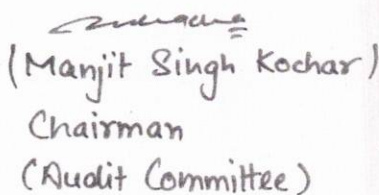 (Manjit Singh Kochar)
Chairman
(Audit Committee)